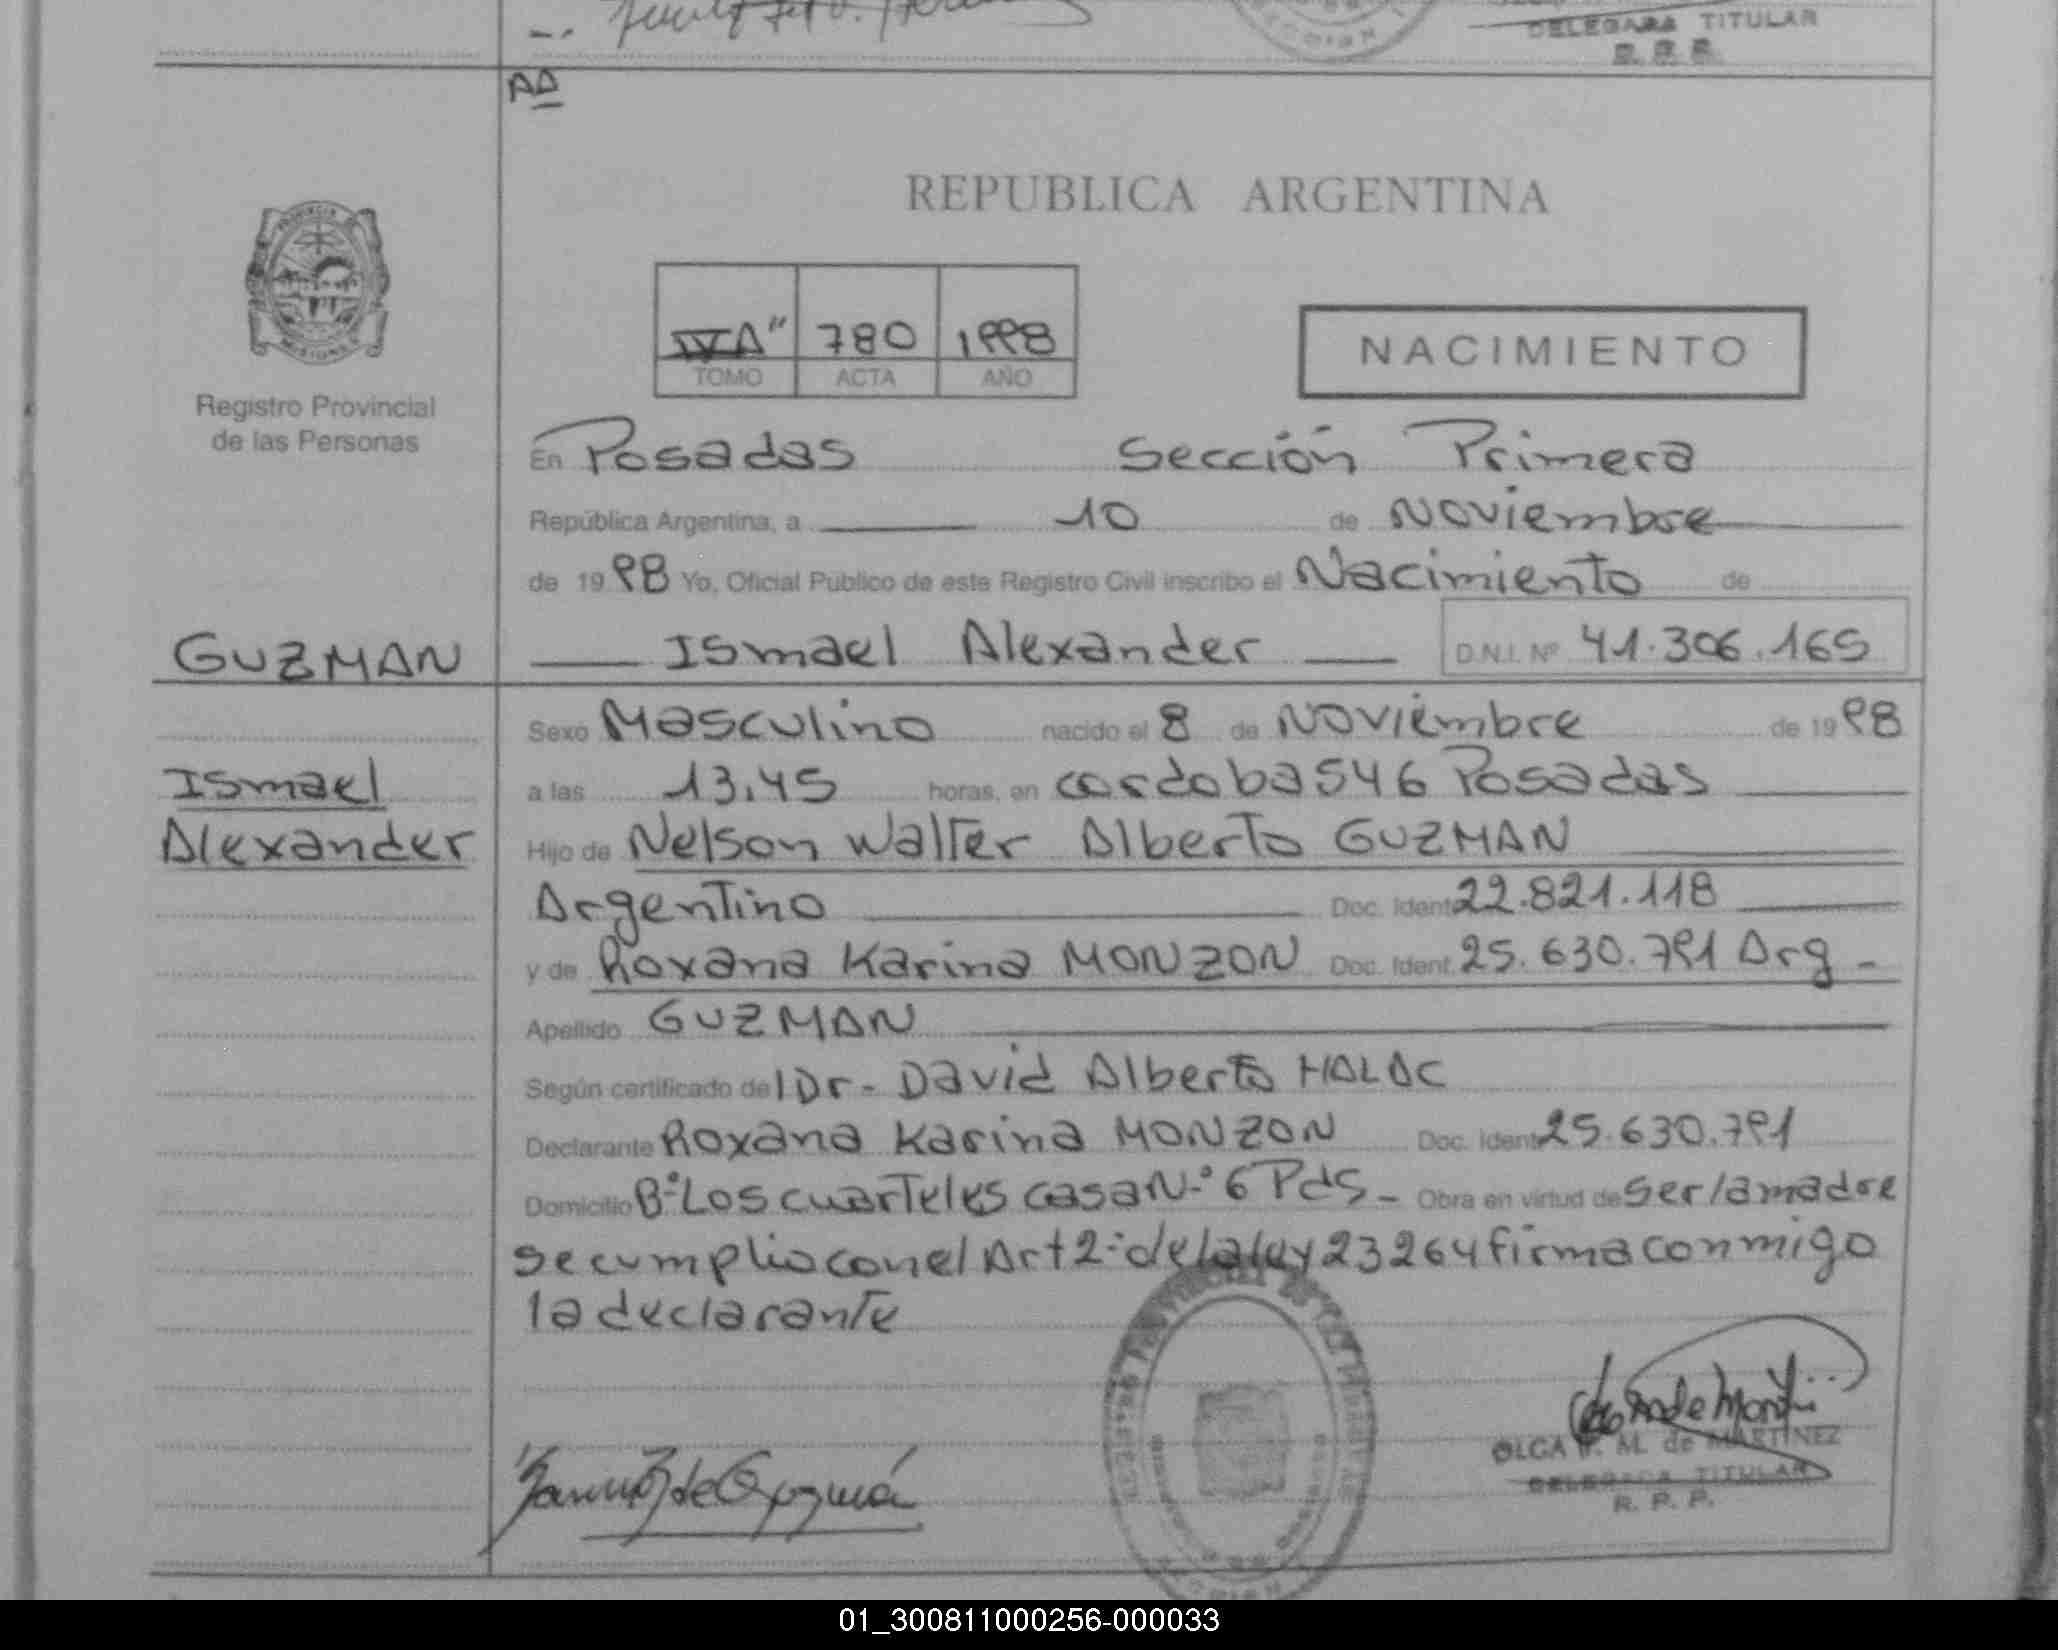 DELEGADA TITULAR
R. P. P.
AA
REPUBLICA ARGENTINA
PROVINCIA
MISIONES
IV"A" 780 1998
TOMO ACTA AÑO
NACIMIENTO
Registro Provincial
de las Personas
En Posadas Sección Primera
República Argentina, a 10 de Noviembre
de 1998 Yo, Oficial Público de este Registro Civil inscribo el Nacimiento de
GUZMAN Ismael Alexander D.N.I. Nº 41.306.165
Sexo Masculino nacido el 8 de Noviembre de 1998
Ismael a las 13,45 horas, en cordoba 546 Posadas
Alexander Hijo de Nelson Walter Alberto GUZMAN
Argentino Doc. Ident. 22.821.118
y de Roxana Karina MONZON Doc. Ident. 25.630.791 Arg -
Apellido GUZMAN
Según certificado del Dr - David Alberto HALAC
Declarante Roxana Karina MONZON Doc. Ident. 25.630.791
Domicilio Bº Los cuarteles casa N-º 6 Pds - Obra en virtud de ser la madre
se cumplio con el Art 2º de la ley 23264 firma conmigo
la declarante
OLGA M. de MARTINEZ
DELEGADA TITULAR
R. P. P.
01_300811000256-000033